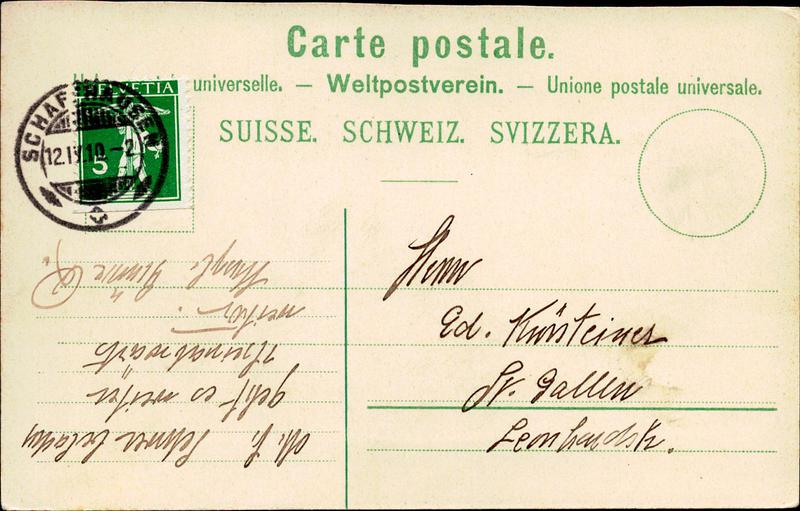 Carte postale.
universelle. — Weltpostverein. — Unione postale universale.
SUISSE. SCHWEIZ. SVIZZERA.
HELVETIA
5
SCHAFFHAUSEN
12.IV.10.-2
Herrn
Ed. Kürsteiner
St. Gallen
Leonhardstr.
M. L. Schwer beladen
geht es weiter
Rheinabwärts
weiter.